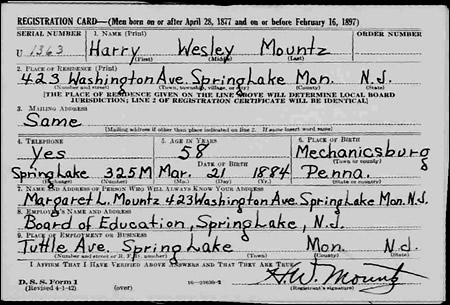 REGISTRATION CARD—(Men born on or after April 28, 1877 and on or before February 16, 1897)
SERIAL NUMBER 1. NAME (Print) ORDER NUMBER
U 1363 Harry Wesley Mountz
(First) (Middle) (Last)
2. PLACE OF RESIDENCE (Print)
423 Washington Ave. Spring Lake Mon. N.J.
(Number and street) (Town, township, village, or city) (County) (State)
[THE PLACE OF RESIDENCE GIVEN ON THE LINE ABOVE WILL DETERMINE LOCAL BOARD
JURISDICTION; LINE 2 OF REGISTRATION CERTIFICATE WILL BE IDENTICAL]
3. MAILING ADDRESS
Same
[Mailing address if other than place indicated on line 2. If same insert word same]
4. TELEPHONE 5. AGE IN YEARS 6. PLACE OF BIRTH
Yes 58 Mechanicsburg
DATE OF BIRTH (Town or county)
Spring Lake 325M Mar. 21 1884 Penna.
(Exchange) (Number) (Mo.) (Day) (Yr.) (State or country)
7. NAME AND ADDRESS OF PERSON WHO WILL ALWAYS KNOW YOUR ADDRESS
Margaret L. Mountz 423 Washington Ave. Spring Lake Mon. N.J.
8. EMPLOYER'S NAME AND ADDRESS
Board of Education, Spring Lake, N.J.
9. PLACE OF EMPLOYMENT OR BUSINESS
Tuttle Ave. Spring Lake Mon. N.J.
(Number and street or R. F. D. number) (Town) (County) (State)
I AFFIRM THAT I HAVE VERIFIED ABOVE ANSWERS AND THAT THEY ARE TRUE.
H.W. Mountz
D. S. S. Form 1
(Revised 4-1-42) (over) (Registrant's signature)